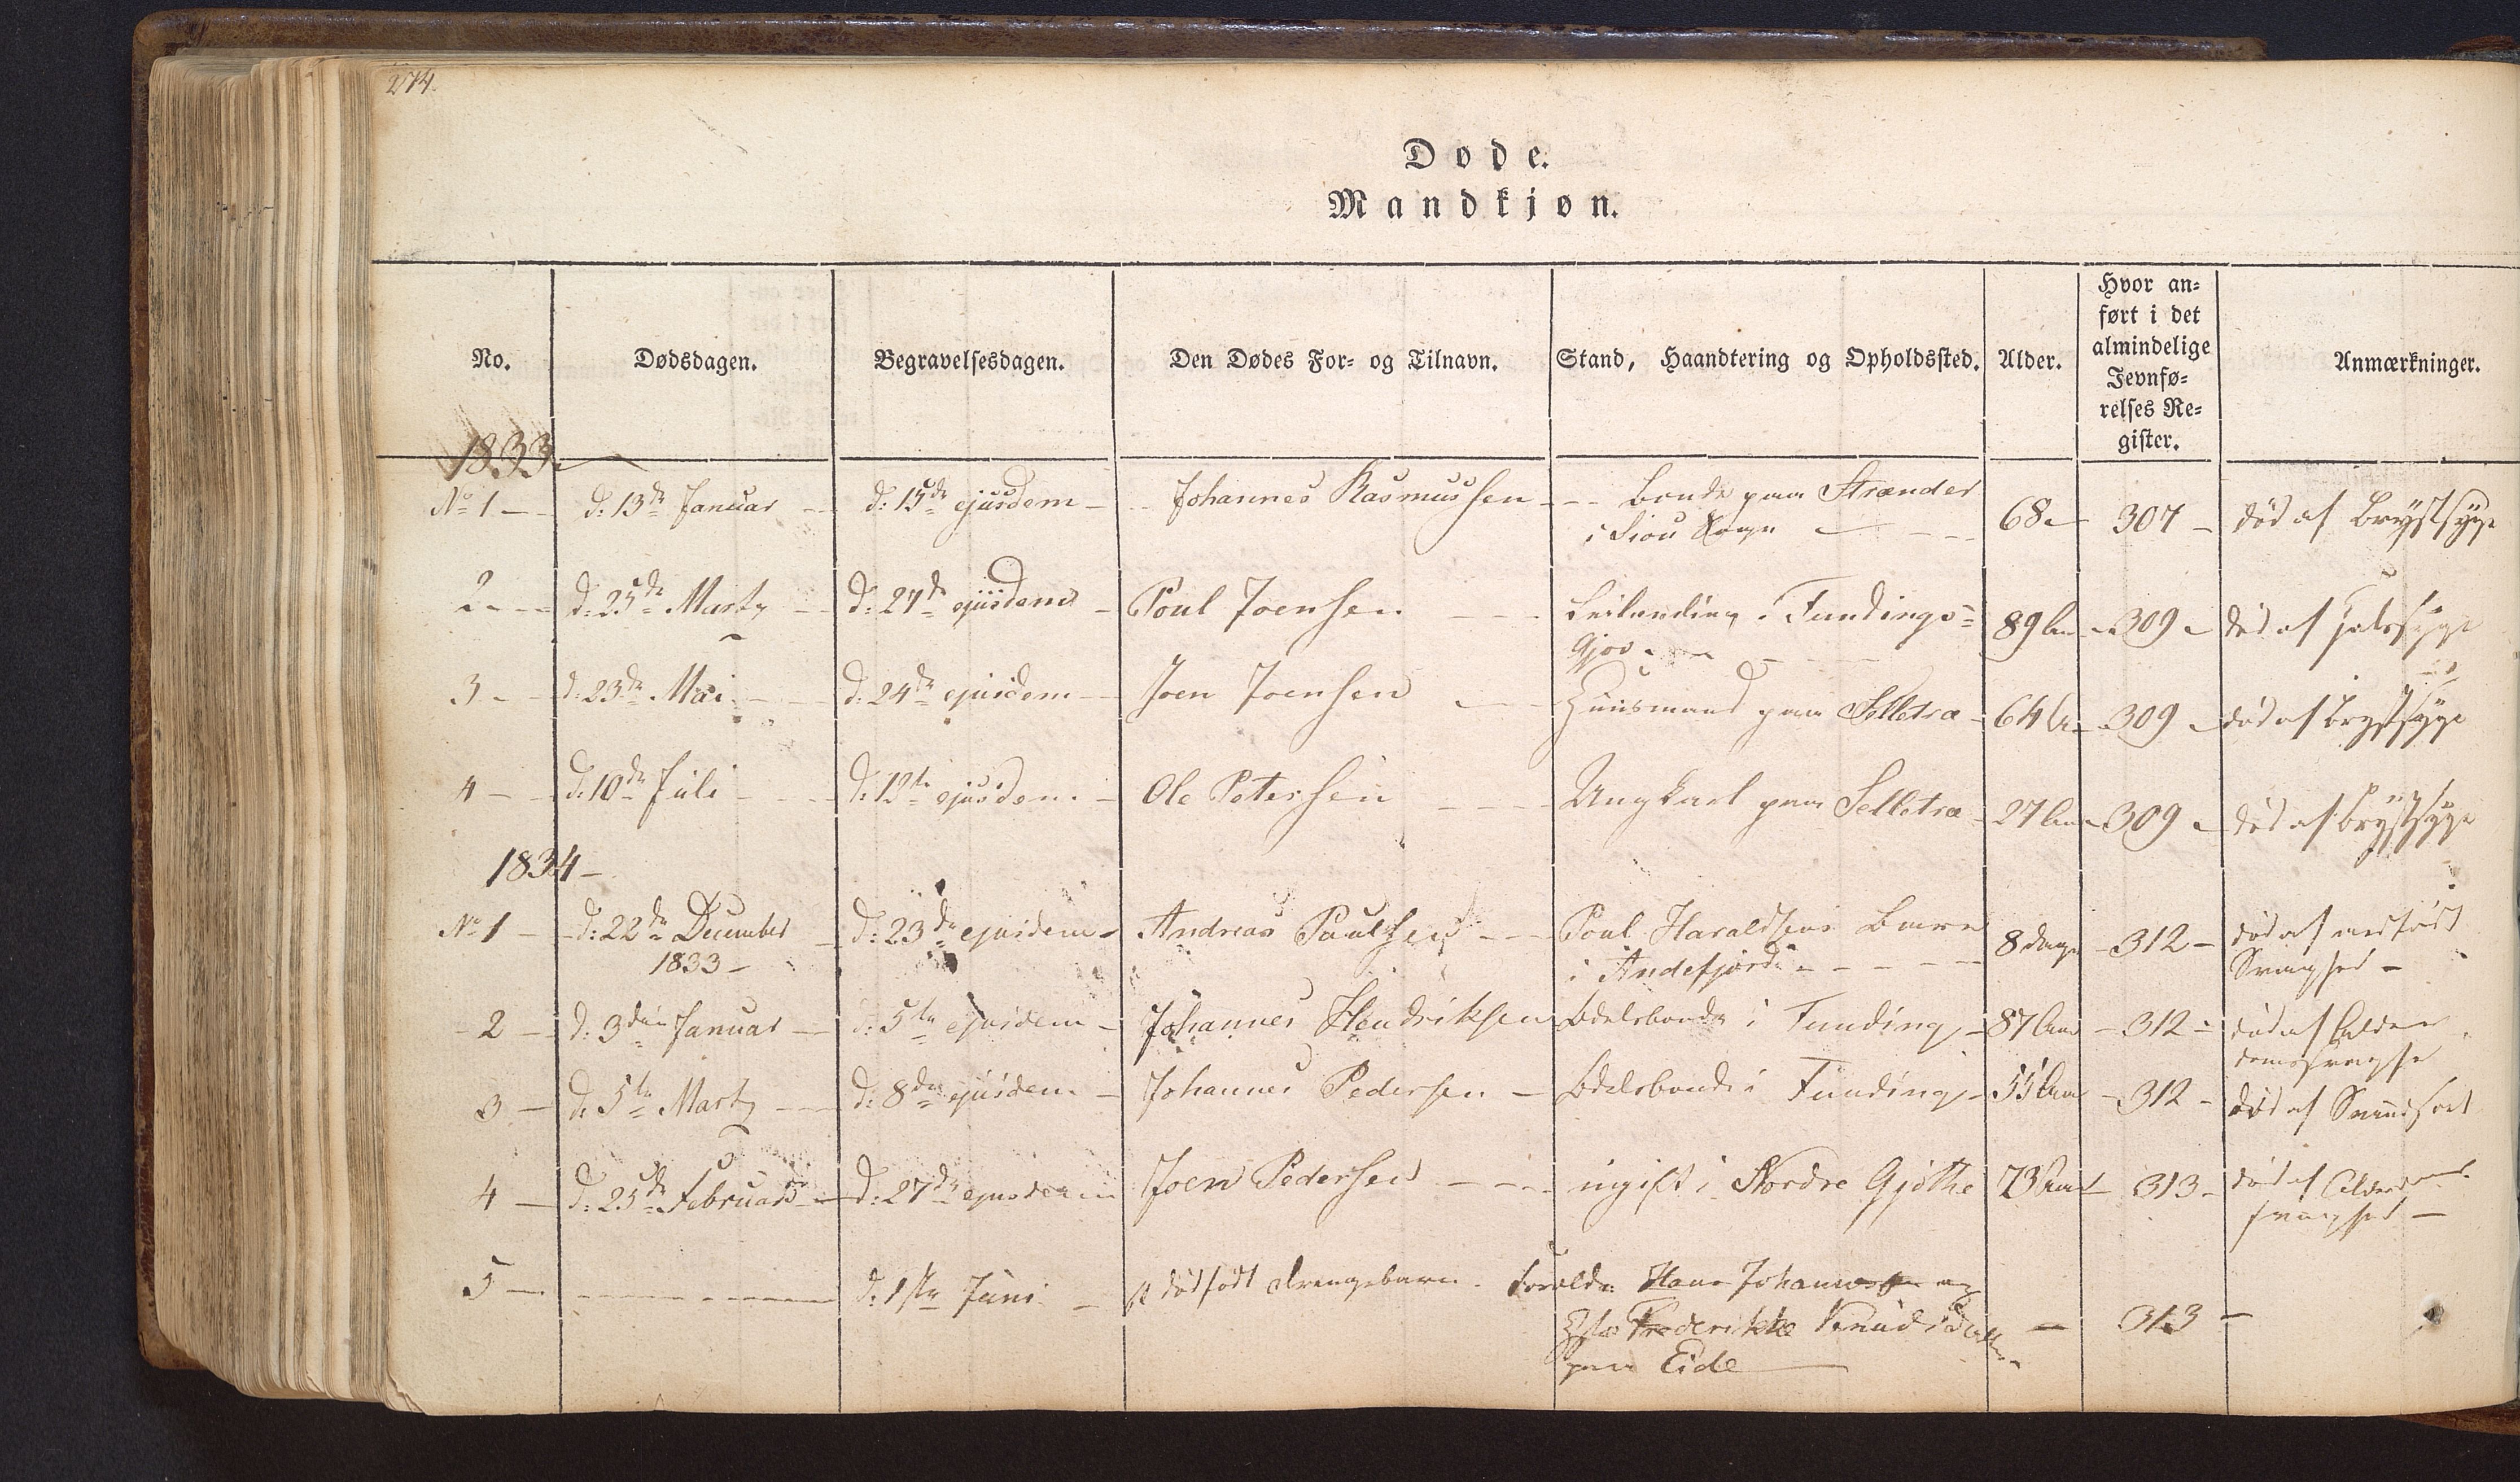 274.
Døde.
Mandkjøn.
No.
Dødsdagen.
Begravelsesdagen.
Den Dødes For- og Tilnavn.
Stand, Haandtering og Opholdssted.
Alder.
Hvor an-
ført i det
almindelige
Jevnfø-
relses Re-
gister.
Anmærkninger.
1833
No 1 — d: 13de Januar — d: 15de ejusdem — Johannes Rasmussen — Bonde paa Strænder 68 — 307 — død af Brystsyge
i Siou Sogn
2 — d: 25de Marty — d: 27de ejusdem — Poul Joensen — Leilending i Fundings= 89 Aar — 309 — død af Halssyge
Gjov
3 — d: 23de Mai — d: 24de ejusdem — Joen Joensen — Huusmand paa Selletræ — 64 Aar — 309 — død af Brystsyge
4 — d: 10de Juli — d: 12te ejusdem — Ole Petersen — Ungkarl paa Selletræ — 27 Aar — 309 — død af Brystsyge
1834 —
No 1 — d: 22de December — d: 23de ejusdem — Andreas Paulsen — Poul Haraldsens Barn 8 Dage — 312 — død af medfødt
1833 — i Andefjord — Svaghed —
2 — d: 3die Januar — d: 5te ejusdem — Johannes Hendriksen Odelsbonde i Funding — 87 Aar — 312 — død af Alder-
domssvaghe
3 — d: 5te Marty — d: 8de ejusdem — Johannes Pedersen — Odelsbonde i Funding — 55 Aar — 312 — død af
4 — d: 25de Februar — d: 27de ejusdem Joen Pedersen — ugift i Nordre Gjøthe 73 Aar — 313 — død af Alderdoms
svaghed —
5 — d: 1ste Juni — et dødfødt Drengebarn. Forældr: Hans Johannessen og
Frederikke Knudsdatter — 313 —
paa Eide